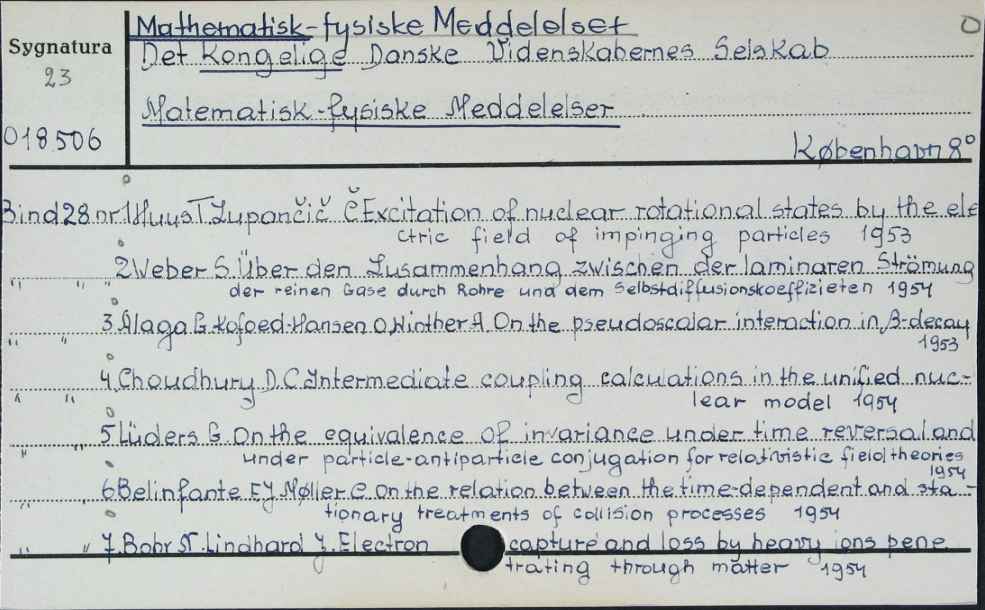 Mathematisk-fysiske Meddelelser
Sygnatura
Det Kongelige Danske Videnskabernes Selskab
23
Matematisk-fysiske Meddelelser
018506
København 8°
Bind 28 nr 1 Huus T. Zupančič Č Excitation of nuclear rotational states by the ele
ctric field of impinging particles 1953
" " " 2 Weber S. Über den Zusammenhang zwischen der laminaren Strömung
der reinen Gase durch Rohre und dem Selbstdiffusionskoeffizieten 1954
" " 3. Alaga G. Kofoed-Hansen O, Winther A. On the pseudoscalar interaction in β-decay
1953
" " 4. Choudhury D.C Intermediate coupling calculations in the unified nuc-
lear model 1954
" " 5 Lüders G. On the equivalence of invariance under time reversal and
under particle-antiparticle conjugation for relativistic field theories
1954
" " 6 Belinfante F.J Møller C on the relation between the time-dependent and sta-
tionary treatments of collision processes 1954
" " 7. Bohr N. Lindhard J. Electron capture and loss by heavy ions pene
trating through matter 1954